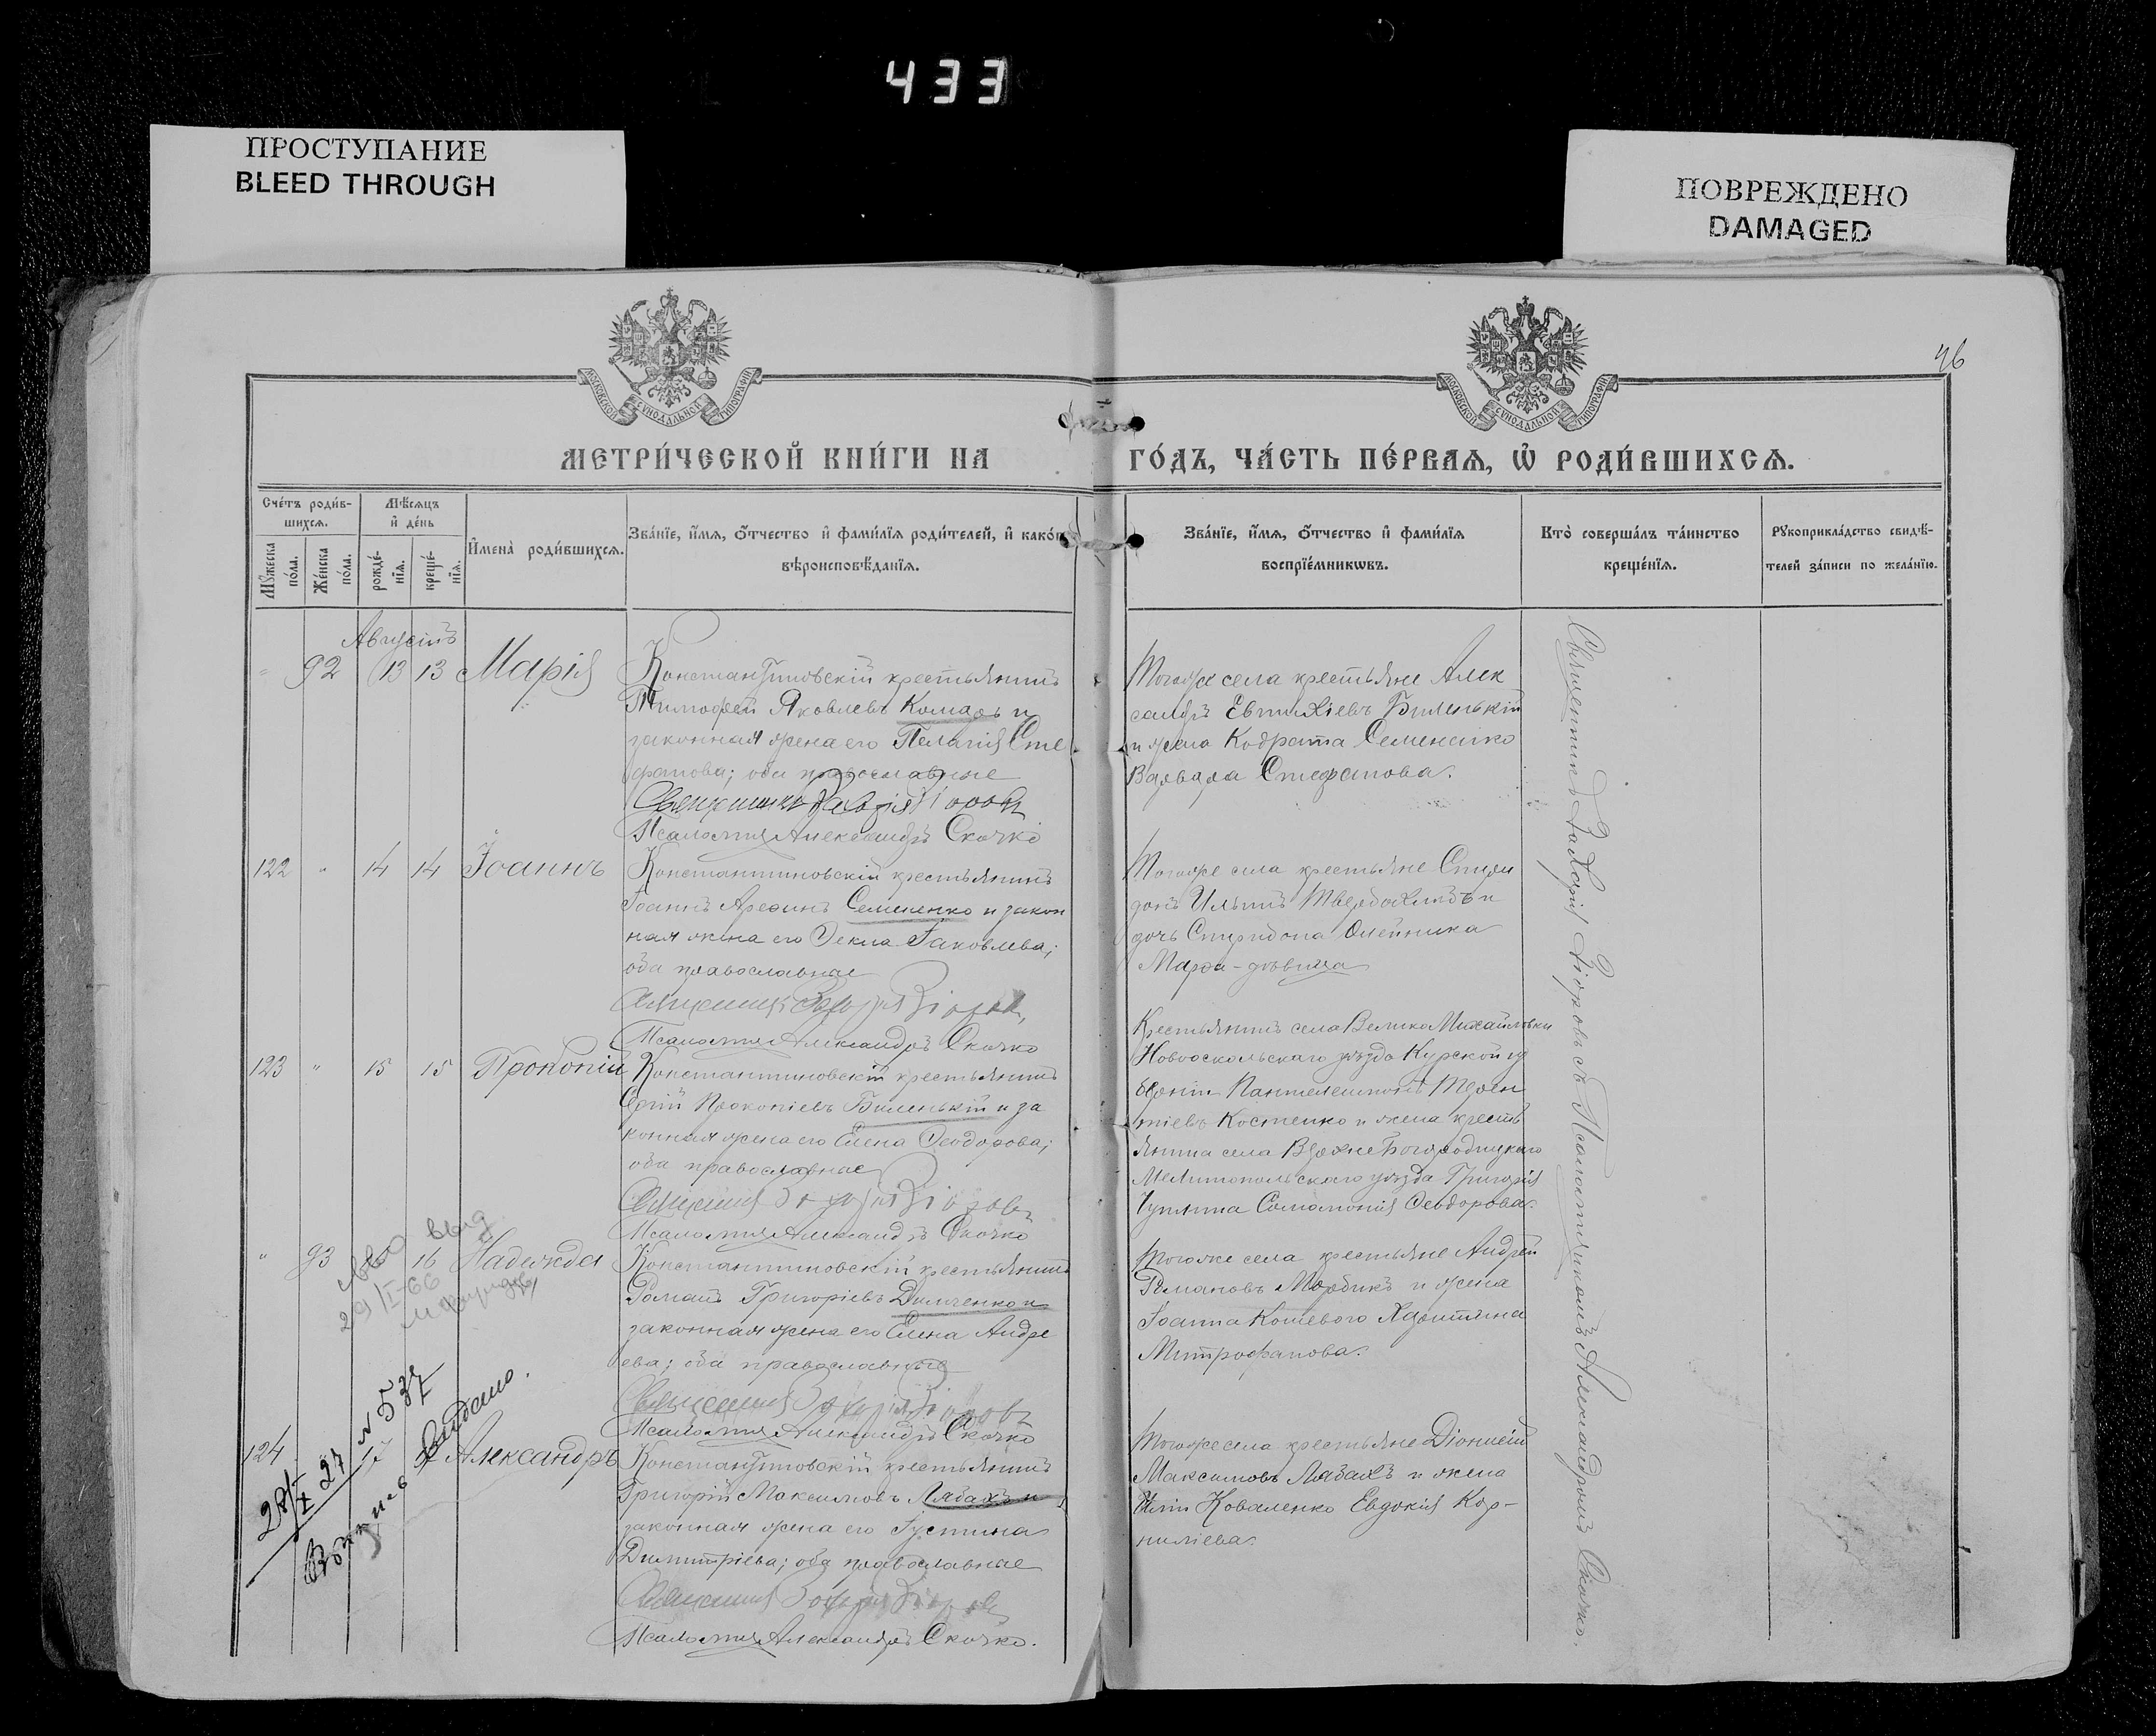 433
ПРОСТУПАНИЕ
BLEED THROUGH
ПОВРЕЖДЕНО
DAMAGED
46
МОСКОВСКОЙ СѴНОДАЛЬНОЙ ТИПОГРАФІИ
МОСКОВСКОЙ СѴНОДАЛЬНОЙ ТИПОГРАФІИ
МЕТРИ́ЧЕСКОЙ КНИ́ГИ НА ГО́ДЪ, ЧА́СТЬ ПЕ́РВАѦ, Ѡ҆ РОДИ́ВШИХСѦ.
Сче́тъ роди́в-
шихсѧ.
Мꙋжеска по́ла.
Же́нска по́ла.
Мѣ́сѧцъ
и҆ де́нь
рожде́-
нїѧ.
креще́-
нїѧ.
И҆мена̀ роди́вшихсѧ.
Зва́нїе, и҆́мѧ, ѻ҆́тчество и҆ фами́лїѧ роди́телей, и҆ како́гѡ
вѣроисповѣ́данїѧ.
Зва́нїе, и҆́мѧ, ѻ҆́тчество и҆ фами́лїѧ
воспрїе́мникѡвъ.
Кто̀ соверша́лъ та́инство
креще́нїѧ.
Рꙋкоприкла́дство свидѣ́-
телей за́писи по жела́нїю.
Августъ
" 92 13 13 Марія
Константиновскій крестьянинъ
Тимофей Яковлевъ Комаръ и
законная жена его Пелагія Сте
фанова; оба православные
Священникъ Захарія
Псаломщ Александръ Скочко
Тогоже села крестьяне Алек
сандръ Евтихіевъ Биленькій
и жена Кодрата Семененко
Варвара Стефанова.
122 " 14 14 Іоаннъ
Константиновскій крестьянинъ
Іоаннъ Арефинъ Семененко и закон
ная жена его Фекла Іаковлева;
оба православные
Священникъ Захарія
Псаломщ Александръ Скочко
Тогоже села крестьяне Спири
донъ Ильинъ Твердохлѣбъ и
дочь Спиридона Олейника
Марфа-дѣвица
123 " 15 15 Прокопій
Константиновскій крестьянинъ
Сергій Прокопіевъ Биленькій и за
конная жена его Елена Феодорова;
оба православные
Священникъ Захарія
Псаломщ Александръ Скочко
Крестьянинъ села Велико Михайловки
Новооскольскаго уѣзда Курской гу
берніи Пантелеимонъ Терен
тіевъ Костенко и жена кресть
янина села Верхне Богородицкаго
Мелитопольскаго уѣзда Григорія
Соломонія Феодорова.
" 93 16 Надежда
выд
29/I-66
Константиновскій крестьянинъ
Романъ Григоріевъ Димченко и
законная жена его Елена Андре
ева; оба православные
Священникъ Захарія
Псаломщ Александръ Скочко
Тогоже села крестьяне Андрей
Романовъ Мордикъ и жена
Іоанна Кошевого Христина
Митрофанова.
124 17 Александръ
28/X 27 N 537
Видано.
Константиновскій крестьянинъ
Григорій Максимовъ Лябахъ и
законная жена его Іустина
Димитріева; оба православные
Священникъ Захарія
Псаломщ Александръ Скочко.
Тогоже села крестьяне Діонисій
Максимовъ Лябахъ и жена
Коваленко Евдокія Кор-
ниліева.
Священникъ Захарія съ Псаломщикомъ Александромъ Скочко.